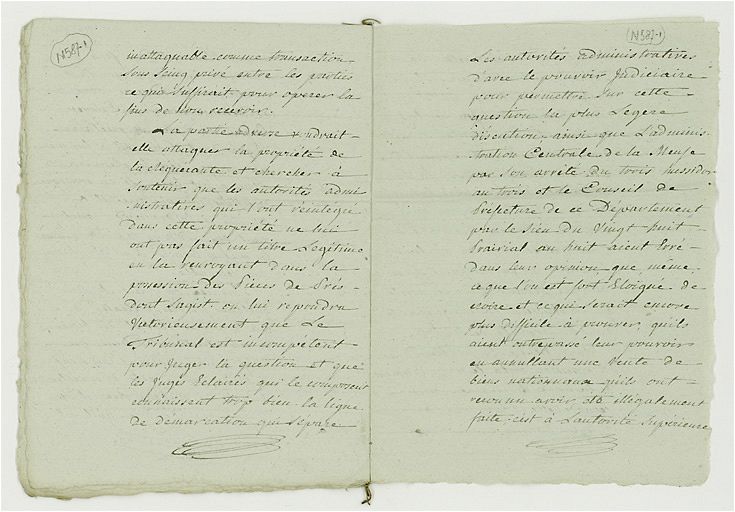 N587-1
inattaquable comme transaction
sous seing privé entre les parties
ce qui suffirait pour opérer la
fins de non recevoir.
La partie adverse voudrait-
elle attaquer la propriété de
la cléquerante et chercher à
soutenir que les autorités admi-
nistratives qui l'ont réintégré
dans cette propriété ne lui
ont pas fait un titre Légitime
en la renvoyant dans la
possession des Pièces de Prés-
dont sagit, on lui repondra
Victorieusement que Le
Tribunal est incompétent
pour Juger la question et que
les Juges Eclairés qui le composent
connaissent trop bien la ligne
de démarcation qui separe
N587-1
Les autorités administratives
d'avec le pouvoir Judiciaire
pour permettre sur cette
question la plus Legere
discution, ainsi que L'adminis-
tration Centrale de la Meuse
par son arrêté du trois messidor
an trois et le Conseil de
Préfecture de ce Département
par le sien du Vingt huit
Prairial an huit aient Erré
Dans leur opinion que même,
ce que l'on est fort Eloigné de
croire et ce qui serait encore
plus difficile à prouver, qu'ils
aient outrepassé leur pouvoir
en annullant une Vente de
biens nationnaux qu'ils ont
reconnu avoir été illégalement
faite, c'est à L'autorité Supérieure